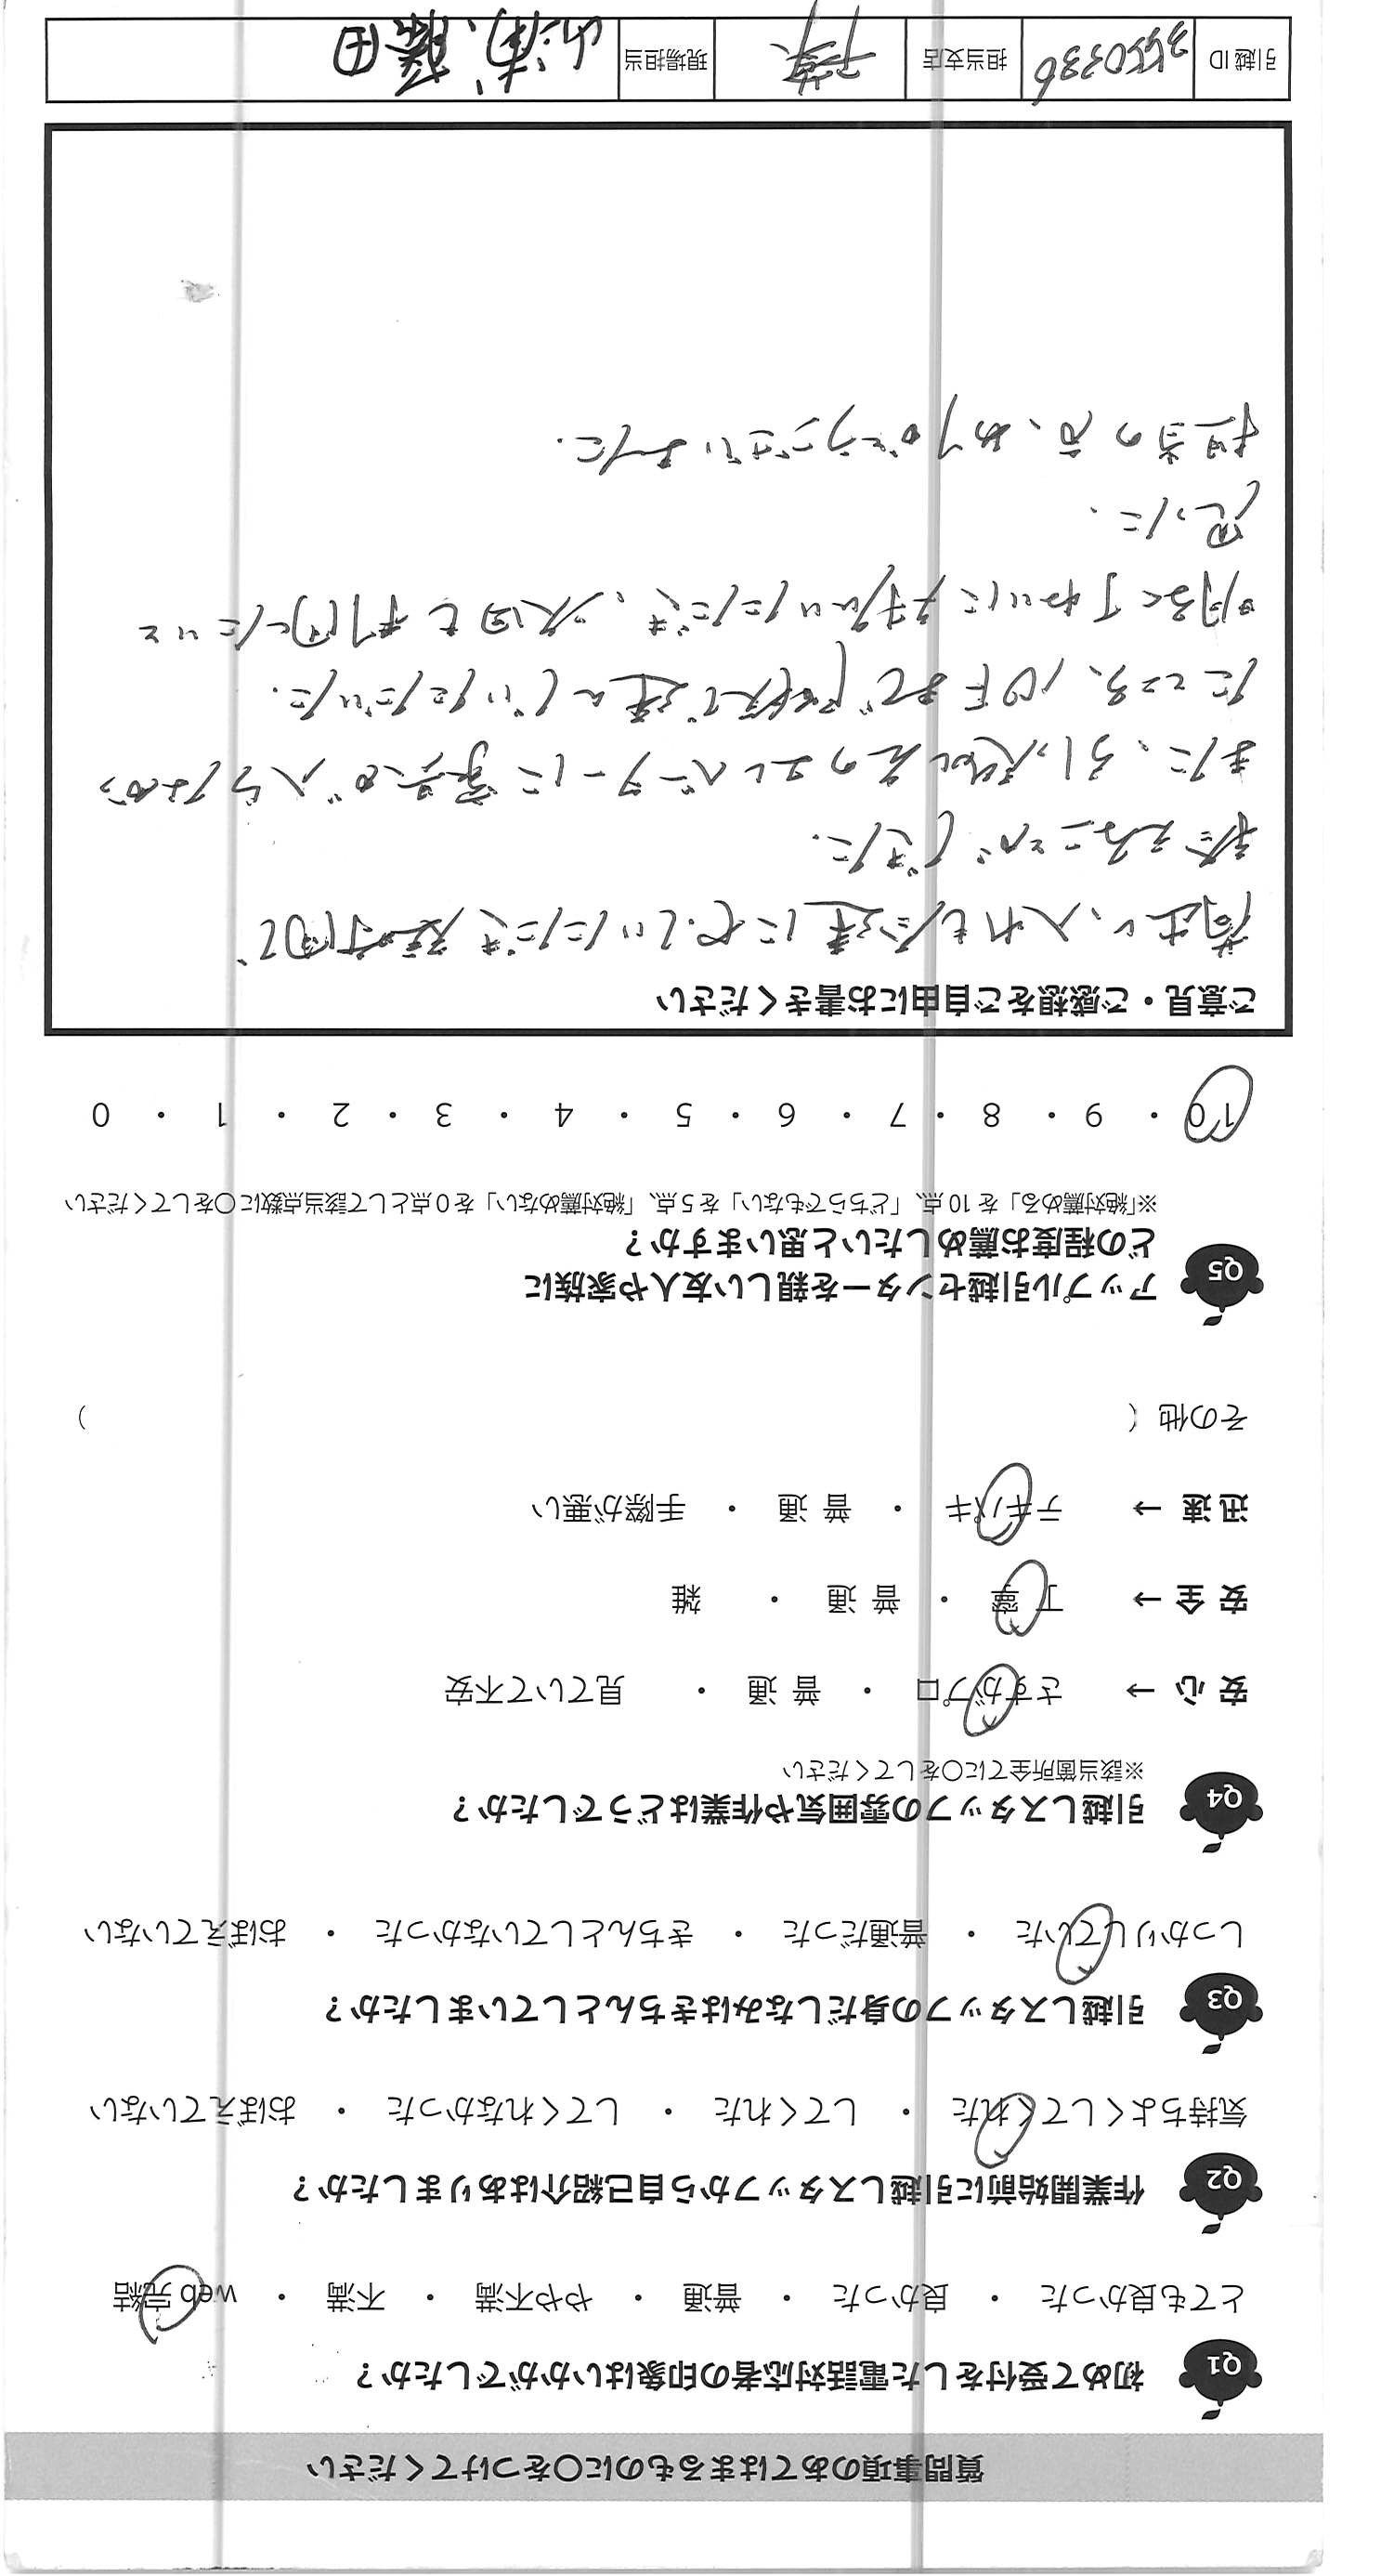 質問事項のあてはまるものに〇をつけてください
Q1 初めて受付をした電話対応者の印象はいかがでしたか？
とても良かった ・ 良かった ・ 普通 ・ やや不満 ・ 不満 ・ web 完結
Q2 作業開始前に引越しスタッフから自己紹介はありましたか？
気持ちよくしてくれた ・ してくれた ・ してくれなかった ・ おぼえていない
Q3 引越しスタッフの身だしなみはきちんとしていましたか？
しっかりしていた ・ 普通だった ・ きちんとしていなかった ・ おぼえていない
Q4 引越しスタッフの雰囲気や作業はどうでしたか？
※該当箇所全てに〇をしてください
安 心 → さすがプロ ・ 普 通 ・ 見ていて不安
安 全 → 丁 寧 ・ 普 通 ・ 雑
迅 速 → テキパキ ・ 普 通 ・ 手際が悪い
その他（ ）
Q5 アップル引越センターを親しい友人や家族に
どの程度お薦めしたいと思いますか？
※「絶対薦める」を 10 点、「どちらでもない」を 5 点、「絶対薦めない」を 0 点として該当点数に〇をしてください
10 ・ 9 ・ 8 ・ 7 ・ 6 ・ 5 ・ 4 ・ 3 ・ 2 ・ 1 ・ 0
ご意見・ご感想をご自由にお書きください
荷出し、入れも迅速にやっていただき短時間で、
終えることができた.
また、引っ越し先のエレベーターに家具が入らなかっ
たところ、10Fまで階段で運んでいただいた.
明るく丁ねいに対応いただき、次回も利用したいと
思った.
担当の方、ありがとうございました.
引越 ID 担当支店 千葉 現場担当 山浦、藤田